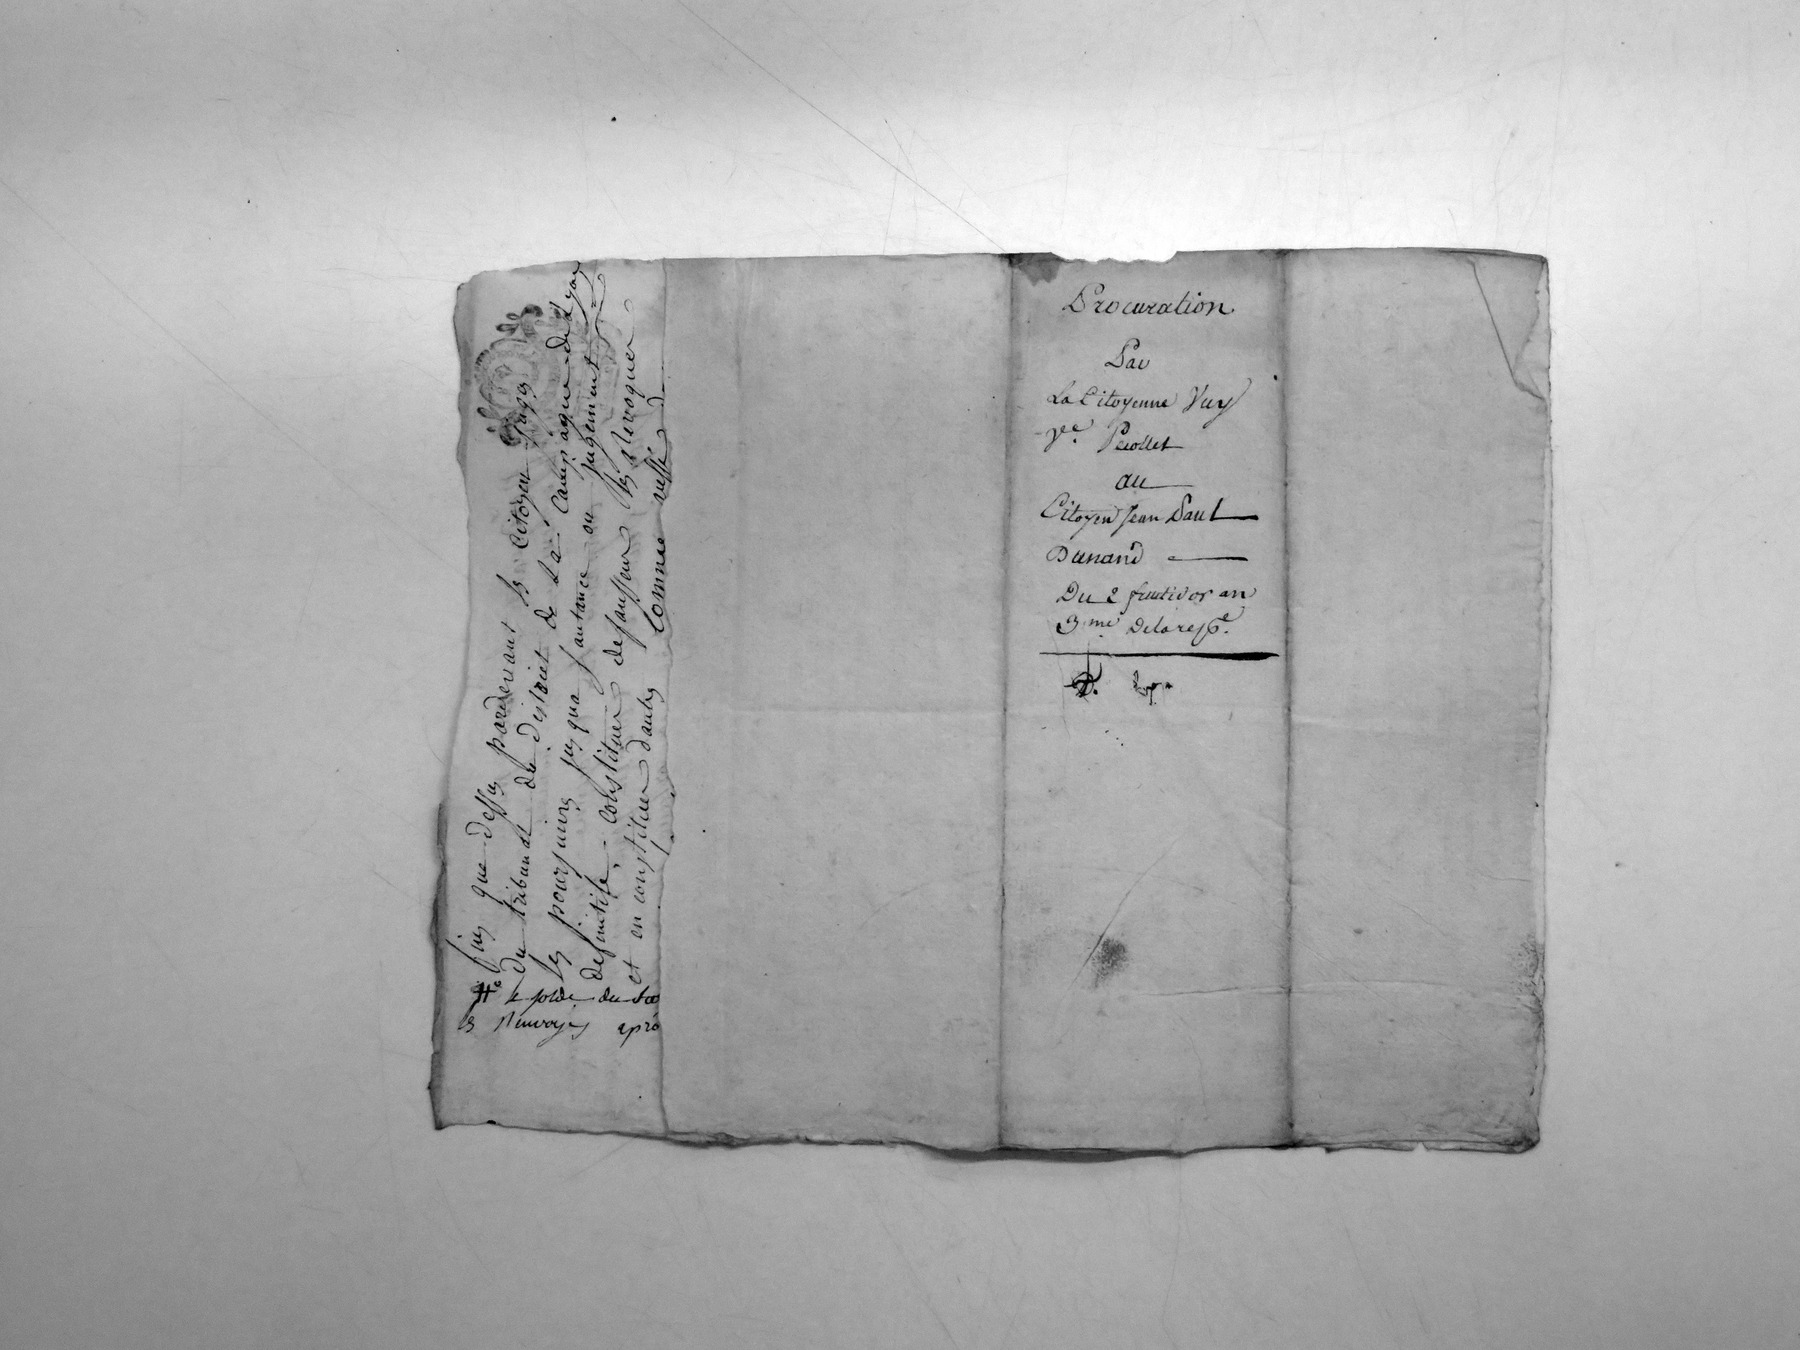 fins que dessus pardevant les Citoyens juges
du tribunal du district de la Campagne de Lyon
les poursuivre jusqua sentance ou jugement
definitife, constituer defansseur les revoquer
et en constituer dautres comme
le solde du
renvoyes apro
Procuration
Par
La Citoyenne Vuy
Ve. Peollet
au
Citoyen Jean Paul
Dunand
Du 2 fructidor an
3me. De la repe.